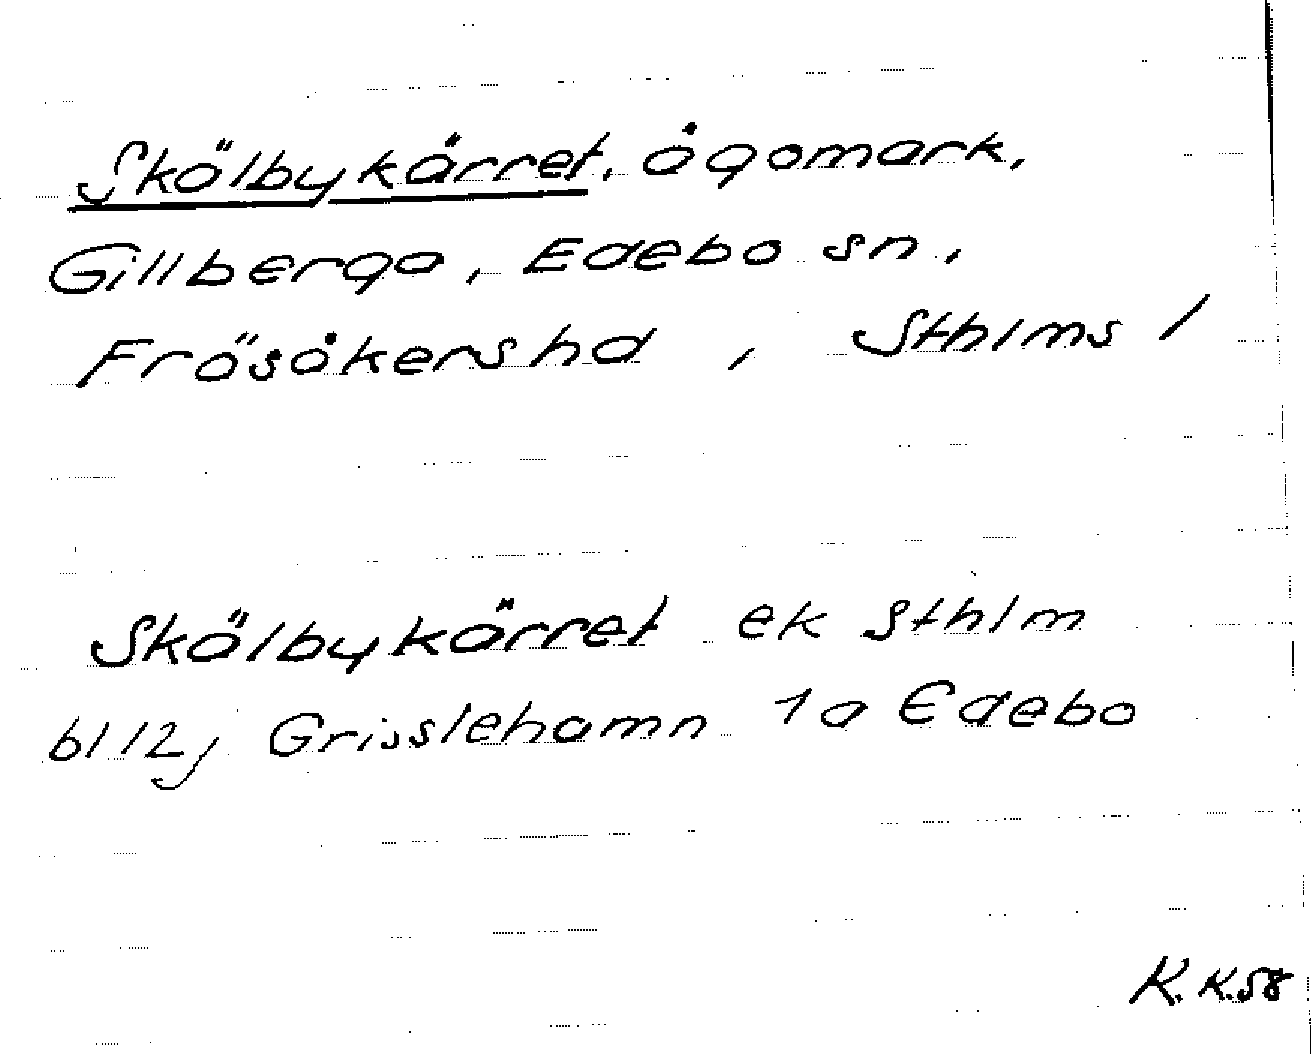 Skölbykärret, ägomark,
Gillberga, Edebo sn.,
Frösåkers hd, Sthlms l
Skölbykärret ek Sthlm
bl 12j Grisslehamn 1a Edebo
K. K. 58